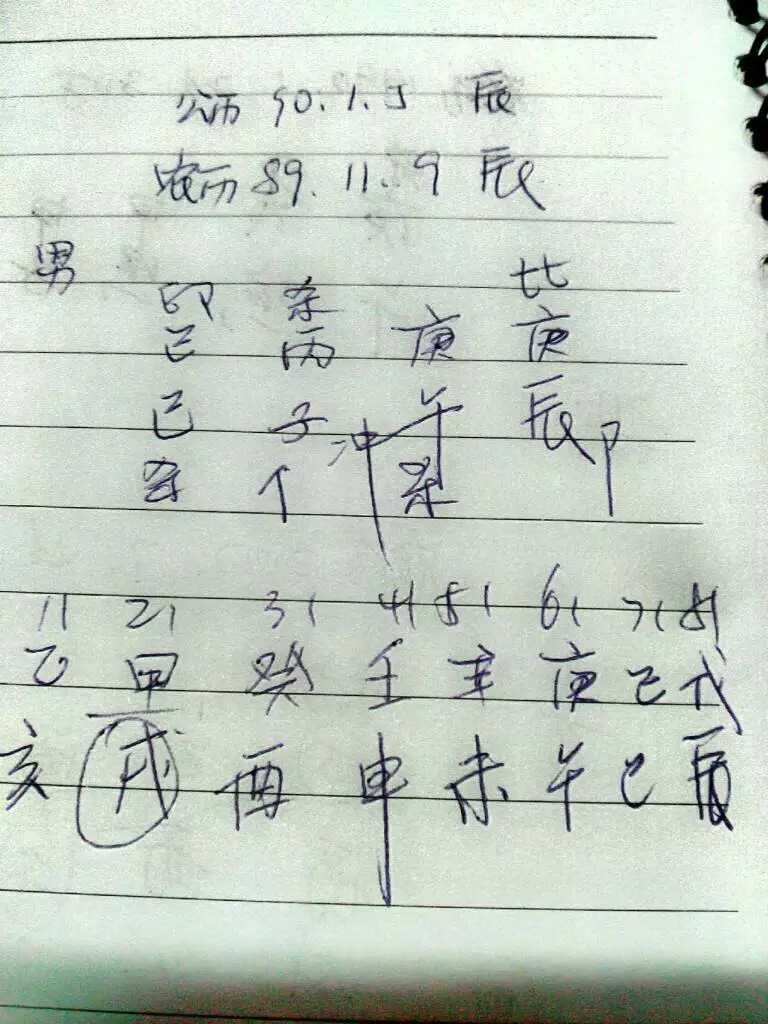 公历 90.1.5 辰
农历 89.11.9 辰
男
印 杀 比
己 丙 庚 庚
巳 子 冲 午 辰 卩
杀 个 杀
11 21 31 41 51 61 71 81
乙 甲 癸 壬 辛 庚 己 戊
亥 戌 酉 申 未 午 巳 辰